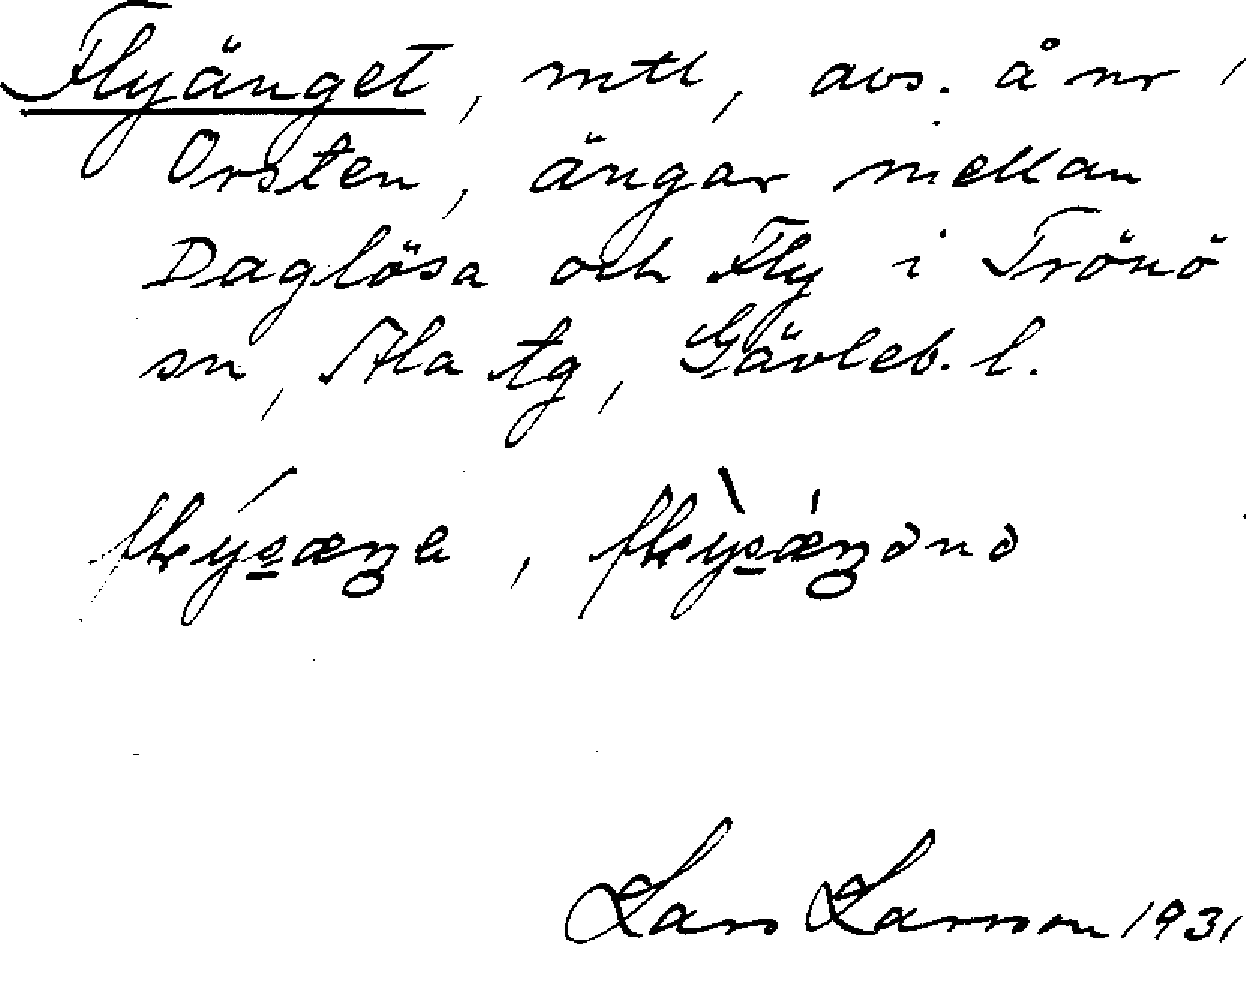 Flyänget, mtl, avs. å nr 1
Orsten, ängar mellan
Daglösa och Fly i Trönö
sn, Ala tg, Gävleb. l.
Lars Larsson 1931